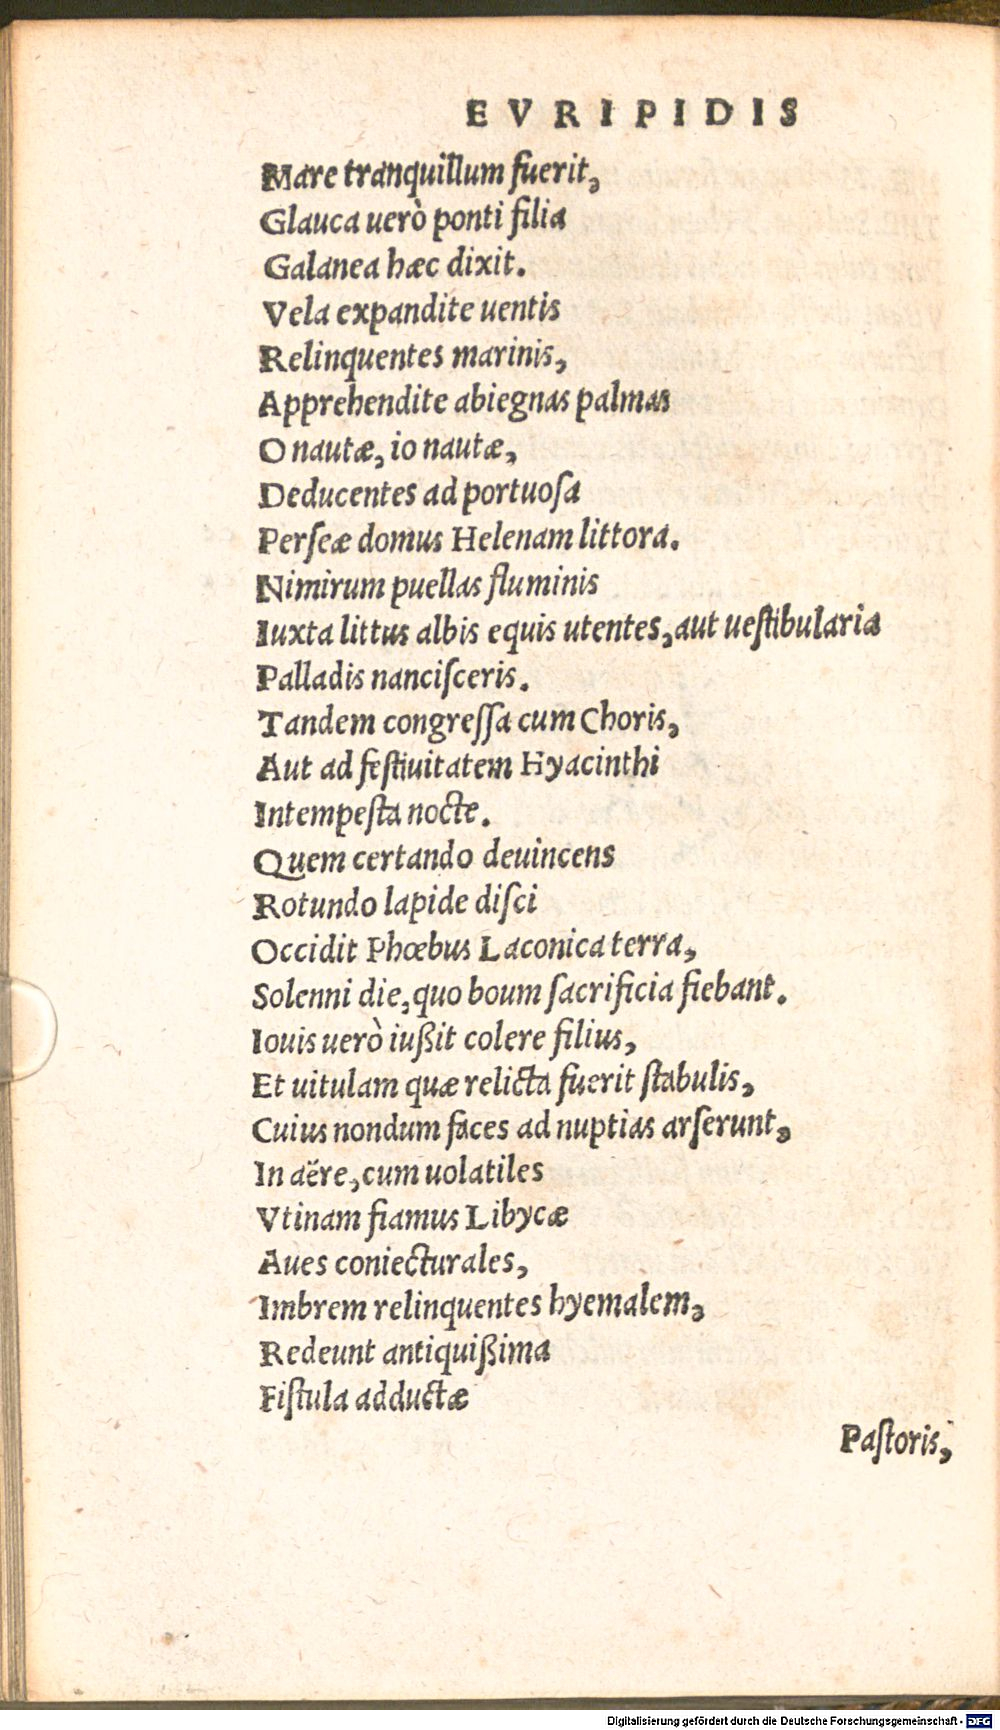 EVRIPIDIS
Mare tranquillum fuerit,
Glauca uerò ponti filia
Galanea hæc dixit.
Vela expandite uentis
Relinquentes marinis,
Apprehendite abiegnas palmas
O nautæ, io nautæ,
Deducentes ad portuosa
Perseæ domus Helenam littora.
Nimirum puellas fluminis
Iuxta littus albis equis utentes, aut uestibularia
Palladis nancisceris.
Tandem congressa cum Choris,
Aut ad festiuitatem Hyacinthi
Intempesta nocte.
Quem certando deuincens
Rotundo lapide disci
Occidit Phœbus Laconica terra,
Solenni die, quo boum sacrificia fiebant.
Iouis uerò iußit colere filius,
Et uitulam quæ relicta fuerit stabulis,
Cuius nondum faces ad nuptias arserunt,
In aëre, cum uolatiles
Vtinam fiamus Libycæ
Aues coniecturales,
Imbrem relinquentes hyemalem,
Redeunt antiquißima
Fistula adductæ
Pastoris,
Digitalisierung gefördert durch die Deutsche Forschungsgemeinschaft - DFG